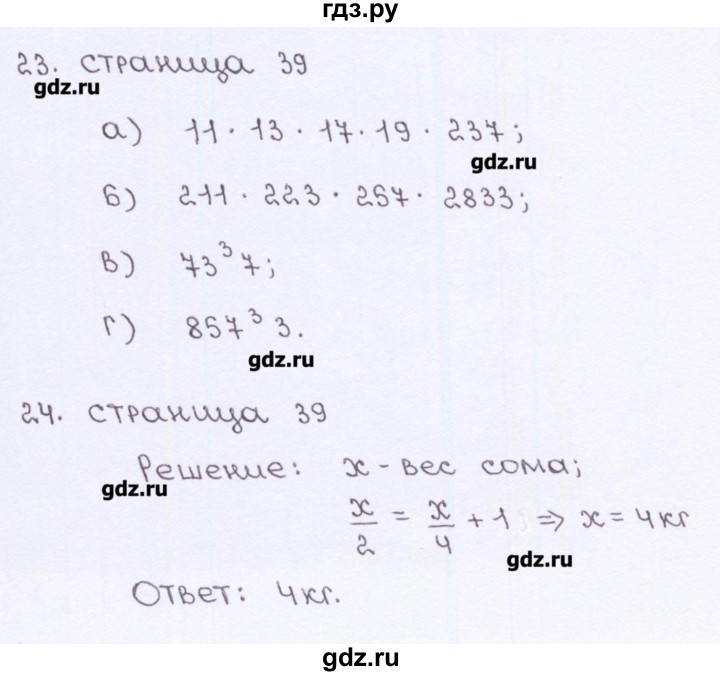 гдз.ру
23. страница 39
gdz.ru
а) 11 · 13 · 17 · 19 · 237;
gdz.ru
б) 211 · 223 · 257 · 2833;
в) 73³7;
г) 857³3.
gdz.ru
24. страница 39
Решение: x - вес сома;
gdz.ru
x/2 = x/4 + 1 => x = 4кг
gdz.ru
Ответ: 4кг.
gdz.ru